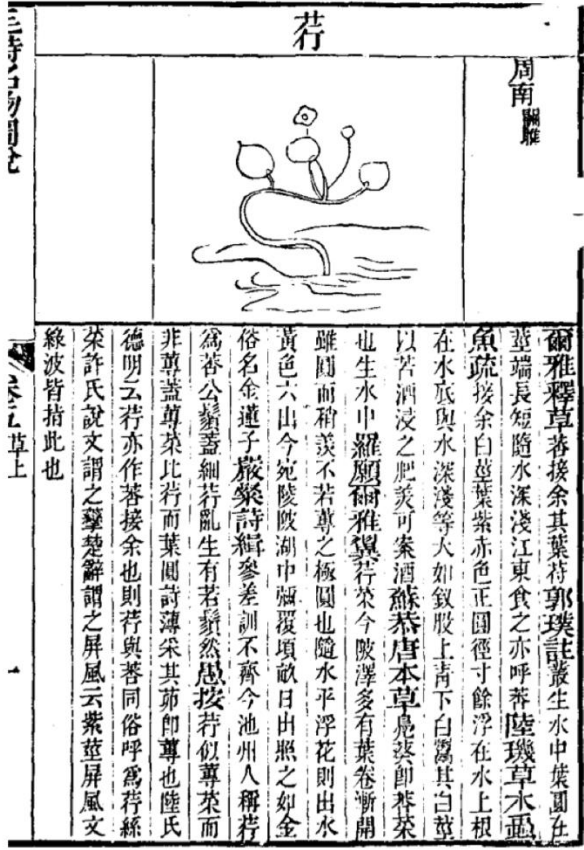 荇
周南 關雎
爾雅釋草莕接余其葉苻郭璞註叢生水中葉圓在
莖端長短隨水深淺江東食之亦呼莕陸璣草木蟲
魚疏接余白莖葉紫赤色正圓徑寸餘浮在水上根
在水底與水深淺等大如釵股上靑下白鬻其白莖
以苦酒浸之肥美可案酒蘇恭唐本草鳧葵卽莕菜
也生水中羅願爾雅翼荇菜今陂澤多有葉卷漸開
雖圓而稍羨不若蓴之極圓也隨水平浮花則出水
黃色六出今宛陵陂湖中彌覆頃畝日出照之如金
俗名金蓮子嚴粲詩緝參差訓不齊今池州人稱荇
爲莕公鬚蓋細荇亂生有若鬚然愚按荇似蓴菜而
非蓴蓋蓴菜比荇而葉圓詩薄采其茆卽蓴也陸氏
德明云荇亦作莕接余也則荇與莕同俗呼爲荇絲
菜許氏說文謂之楚辭謂之屏風云紫莖屏風文
綠波皆指此也
毛詩名物圖說
卷五 草上
一